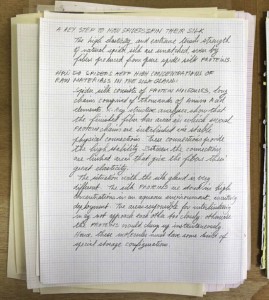 A KEY STEP TO HOW SPIDERS SPIN THEIR SILK
The high elasticity and extreme tensile strength
of natural spider silk are unmatched, even by
fibers produced from pure spider silk PROTEINS.
HOW DO SPIDERS KEEP HIGH CONCENTRATIONS OF
RAW MATERIALS IN THE SILK GLAND?
Spider silk consists of PROTEIN MOLECULES, long
chains comprised of thousands of amino acid
elements. X-ray structure analyses show that
the finished fiber has areas in which several
PROTEIN chains are interlinked via stable
physical connections. These connections provide
the high stability. Between the connections
are unlinked areas that give the fibers their
great elasticity.
The situation with the silk gland is very
different. The silk PROTEINS are stored in high
concentrations in an aqueous environment, awaiting
deployment. The areas responsible for interlinking
may not approach each other too closely otherwise
the PROTEINS would clump up instantaneously.
Hence, these molecules must have some kind of
special storage configuration.